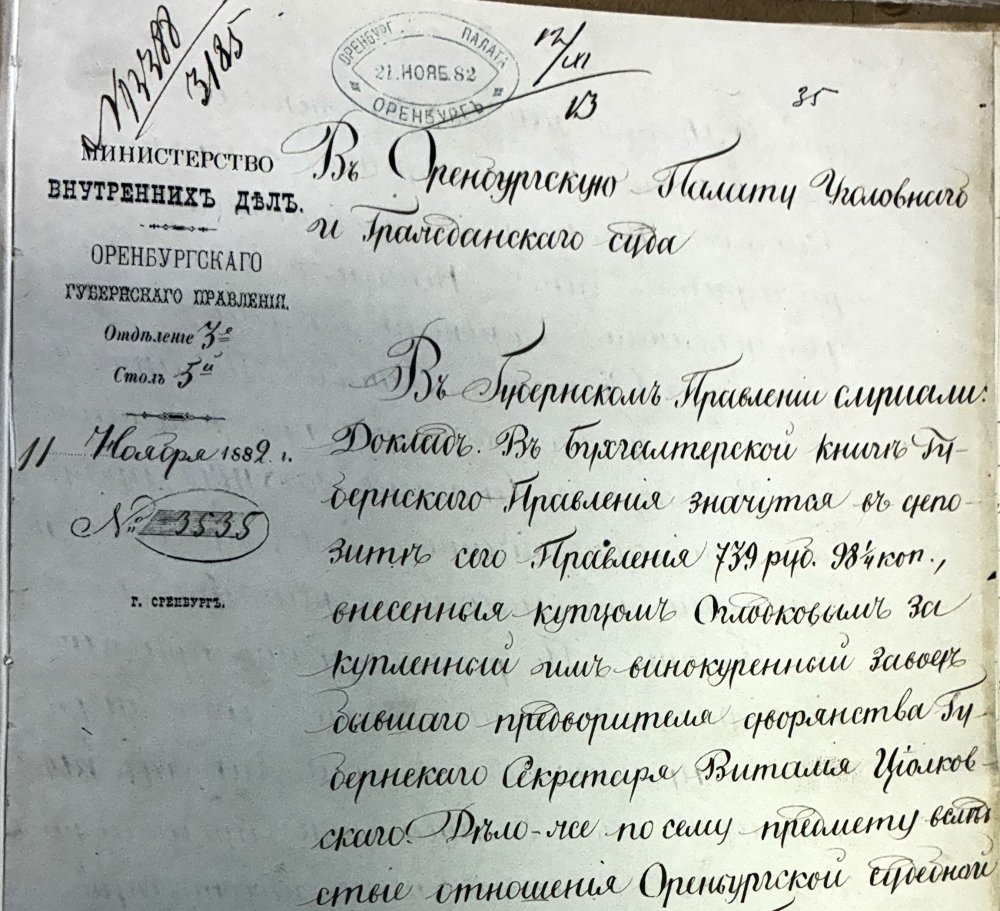 №12388
3185
ОРЕНБУРГ. ПАЛАТА
21.НОЯБ.82
ОРЕНБУРГЪ
12/XI
13
35
МИНИСТЕРСТВО
ВНУТРЕННИХЪ ДѢЛЪ.
ОРЕНБУРГСКАГО
ГУБЕРНСКАГО ПРАВЛЕНІЯ.
Отдѣленіе 3е
Столъ 5й
11 Ноября 1882 г.
№ 3535
Г. ОРЕНБУРГЪ.
Въ Оренбургскую Палату Уголовнаго
и Гражданскаго суда
Въ Губернскомъ Правленіи слушали:
Докладъ. Въ бухгалтерской книгѣ Гу-
бернскаго Правленія значутся въ депо-
зитѣ сего Правленія 739 руб. 98¼ коп.,
внесенныя купцомъ за
купленный имъ винокуренный заводъ
бывшаго предворителя дворянства Гу-
бернскаго Секретаря Виталія Ціолков-
скаго. Дѣло-же по сему предмету вслѣд
ствіе отношенія Оренбургской судебной